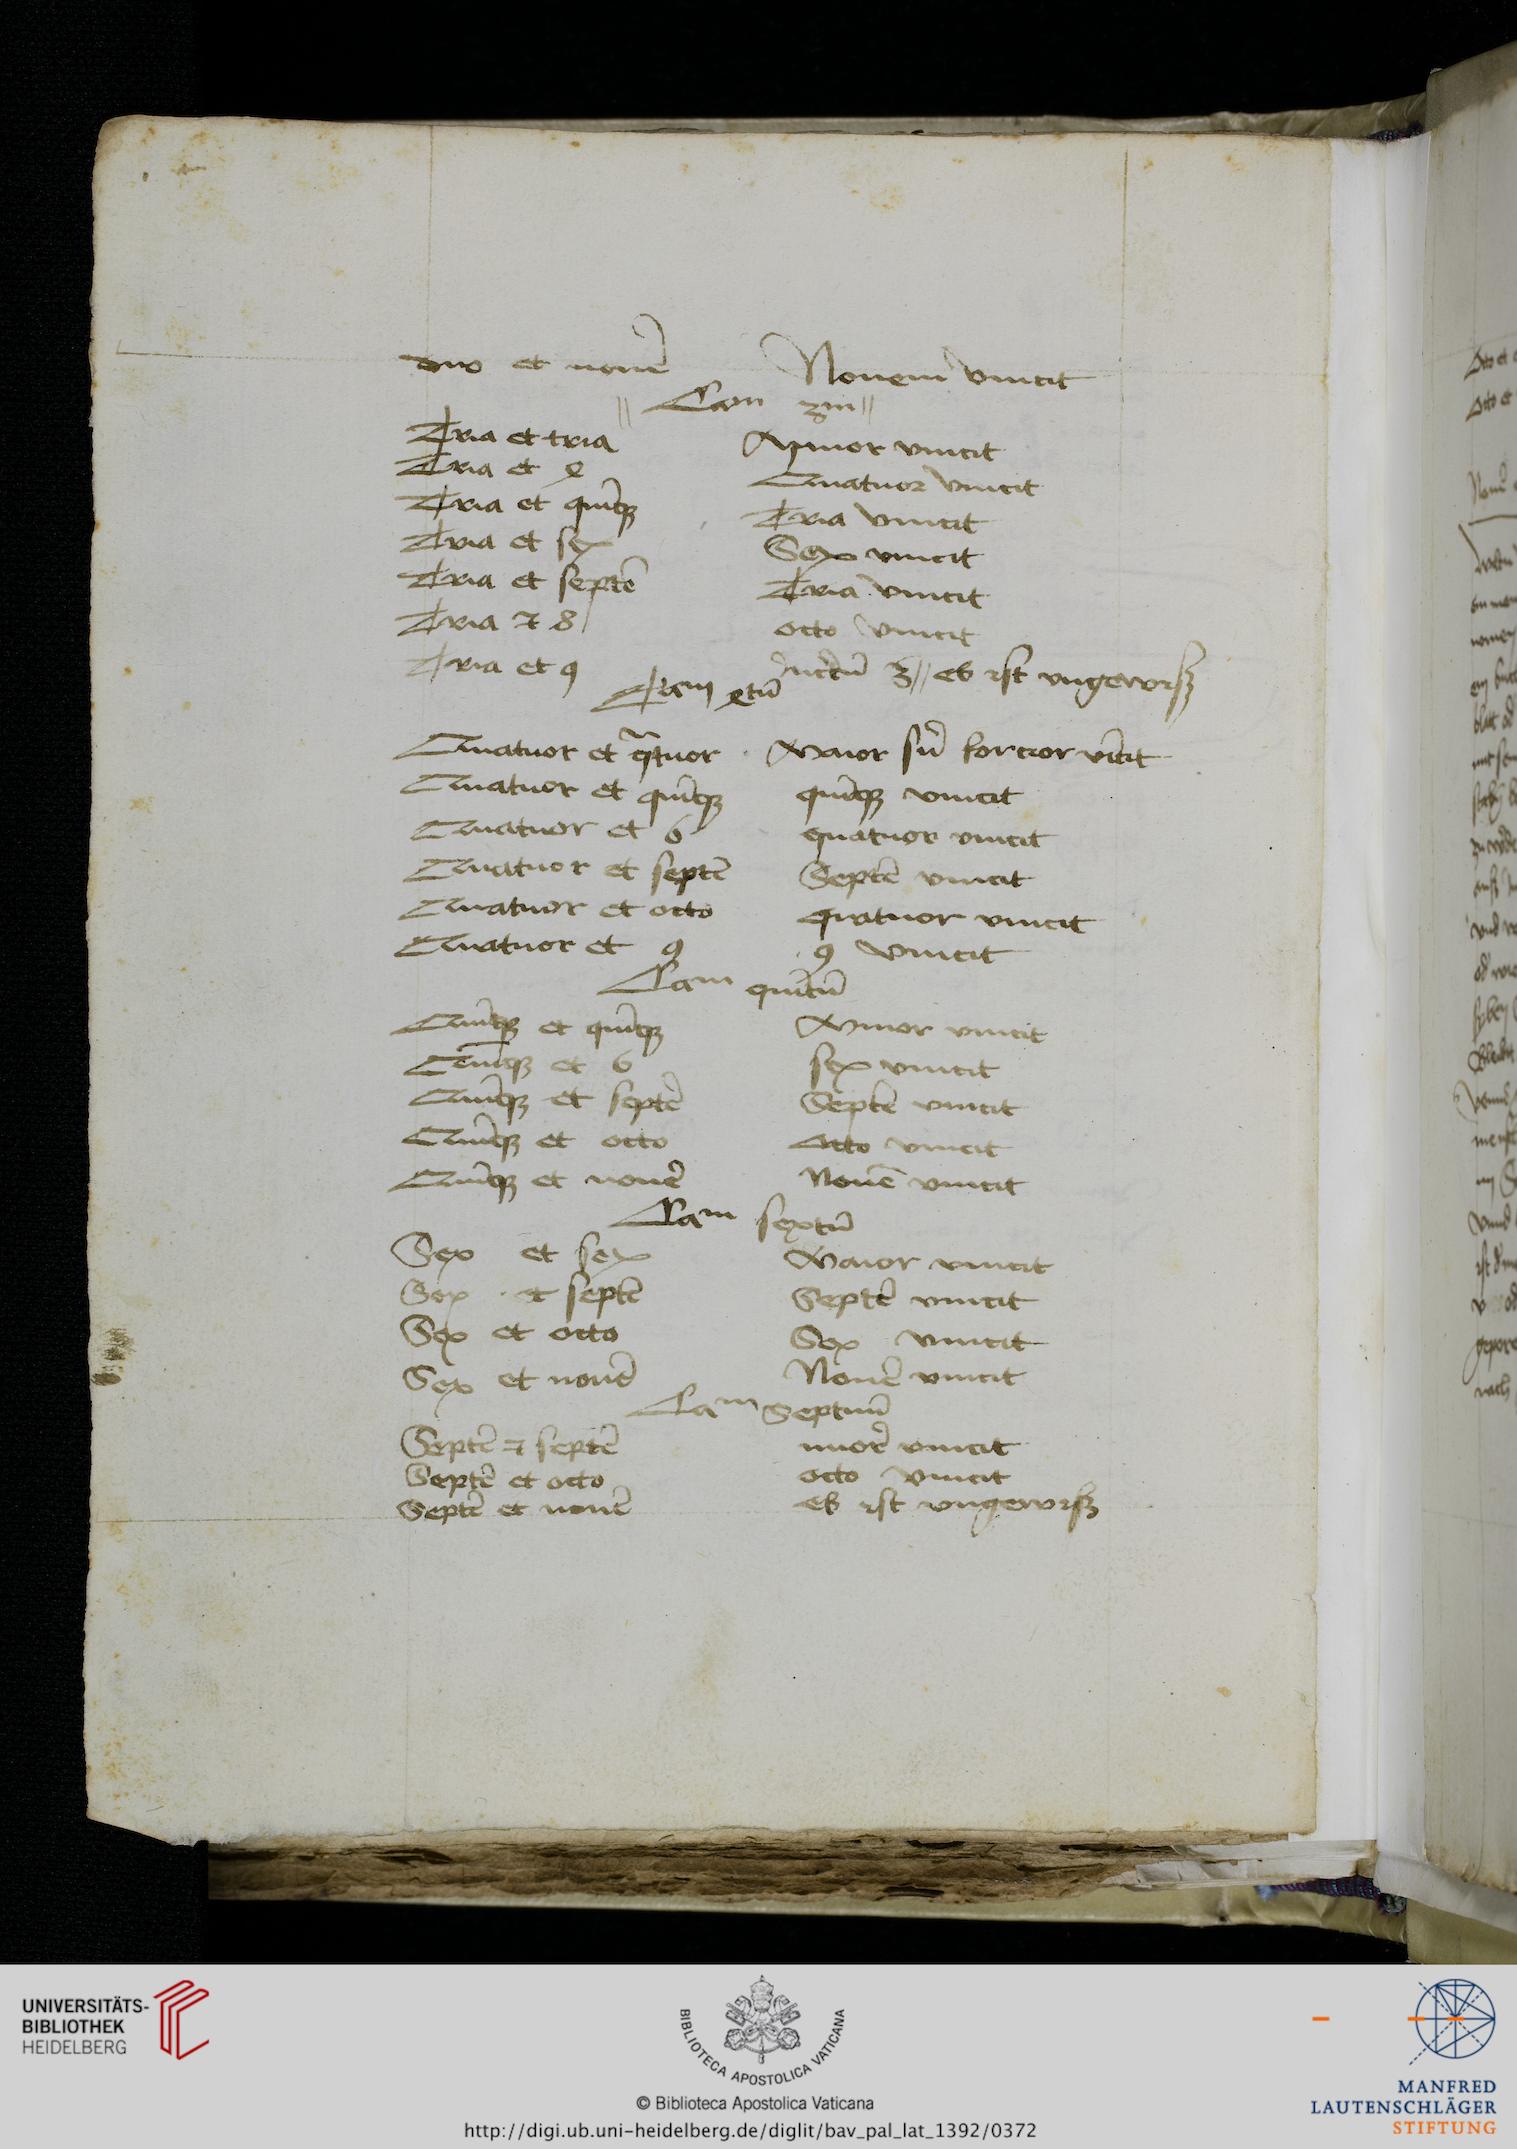 duo et nouē Nouem vincit
Cam 3m
Tria et tria Minor vincit
Tria et 4 Quatuor vincit
Tria et quīqꝫ Tria vincit
Tria et sex Sex vincit
Tria et septē Tria vincit
Tria ⁊ 8 octo vincit
Tria et 9 3 // es ist vngewisß
Cam 4tū
Quatuor et qtuor Maior forcior vīcit
Quatuor et quīqꝫ quīqꝫ vincit
Quatuor et 6 quatuor vincit
Quatuor et septē Septē vincit
Quatuor et octo quatuor vincit
Quatuor et 9 9 vincit
Cam quītū
Quīqꝫ et quīqꝫ Minor vincit
Quīqꝫ et 6 sex vincit
Quīqꝫ et septē Septē vincit
Quīqꝫ et octo octo vincit
Quīqꝫ et nouē Nouē vincit
Cam sextū
Sex et sex Maior vincit
Sex et septē Septē vincit
Sex et octo Sex vincit
Sex et nouē Nouē vincit
Cam septimū
Septē ⁊ septē vincit
Septē et octo octo vincit
Septē et nouē es ist vngewisß
UNIVERSITÄTS-
BIBLIOTHEK
HEIDELBERG
BIBLIOTECA APOSTOLICA VATICANA
© Biblioteca Apostolica Vaticana
http://digi.ub.uni-heidelberg.de/diglit/bav_pal_lat_1392/0372
MANFRED
LAUTENSCHLÄGER
STIFTUNG